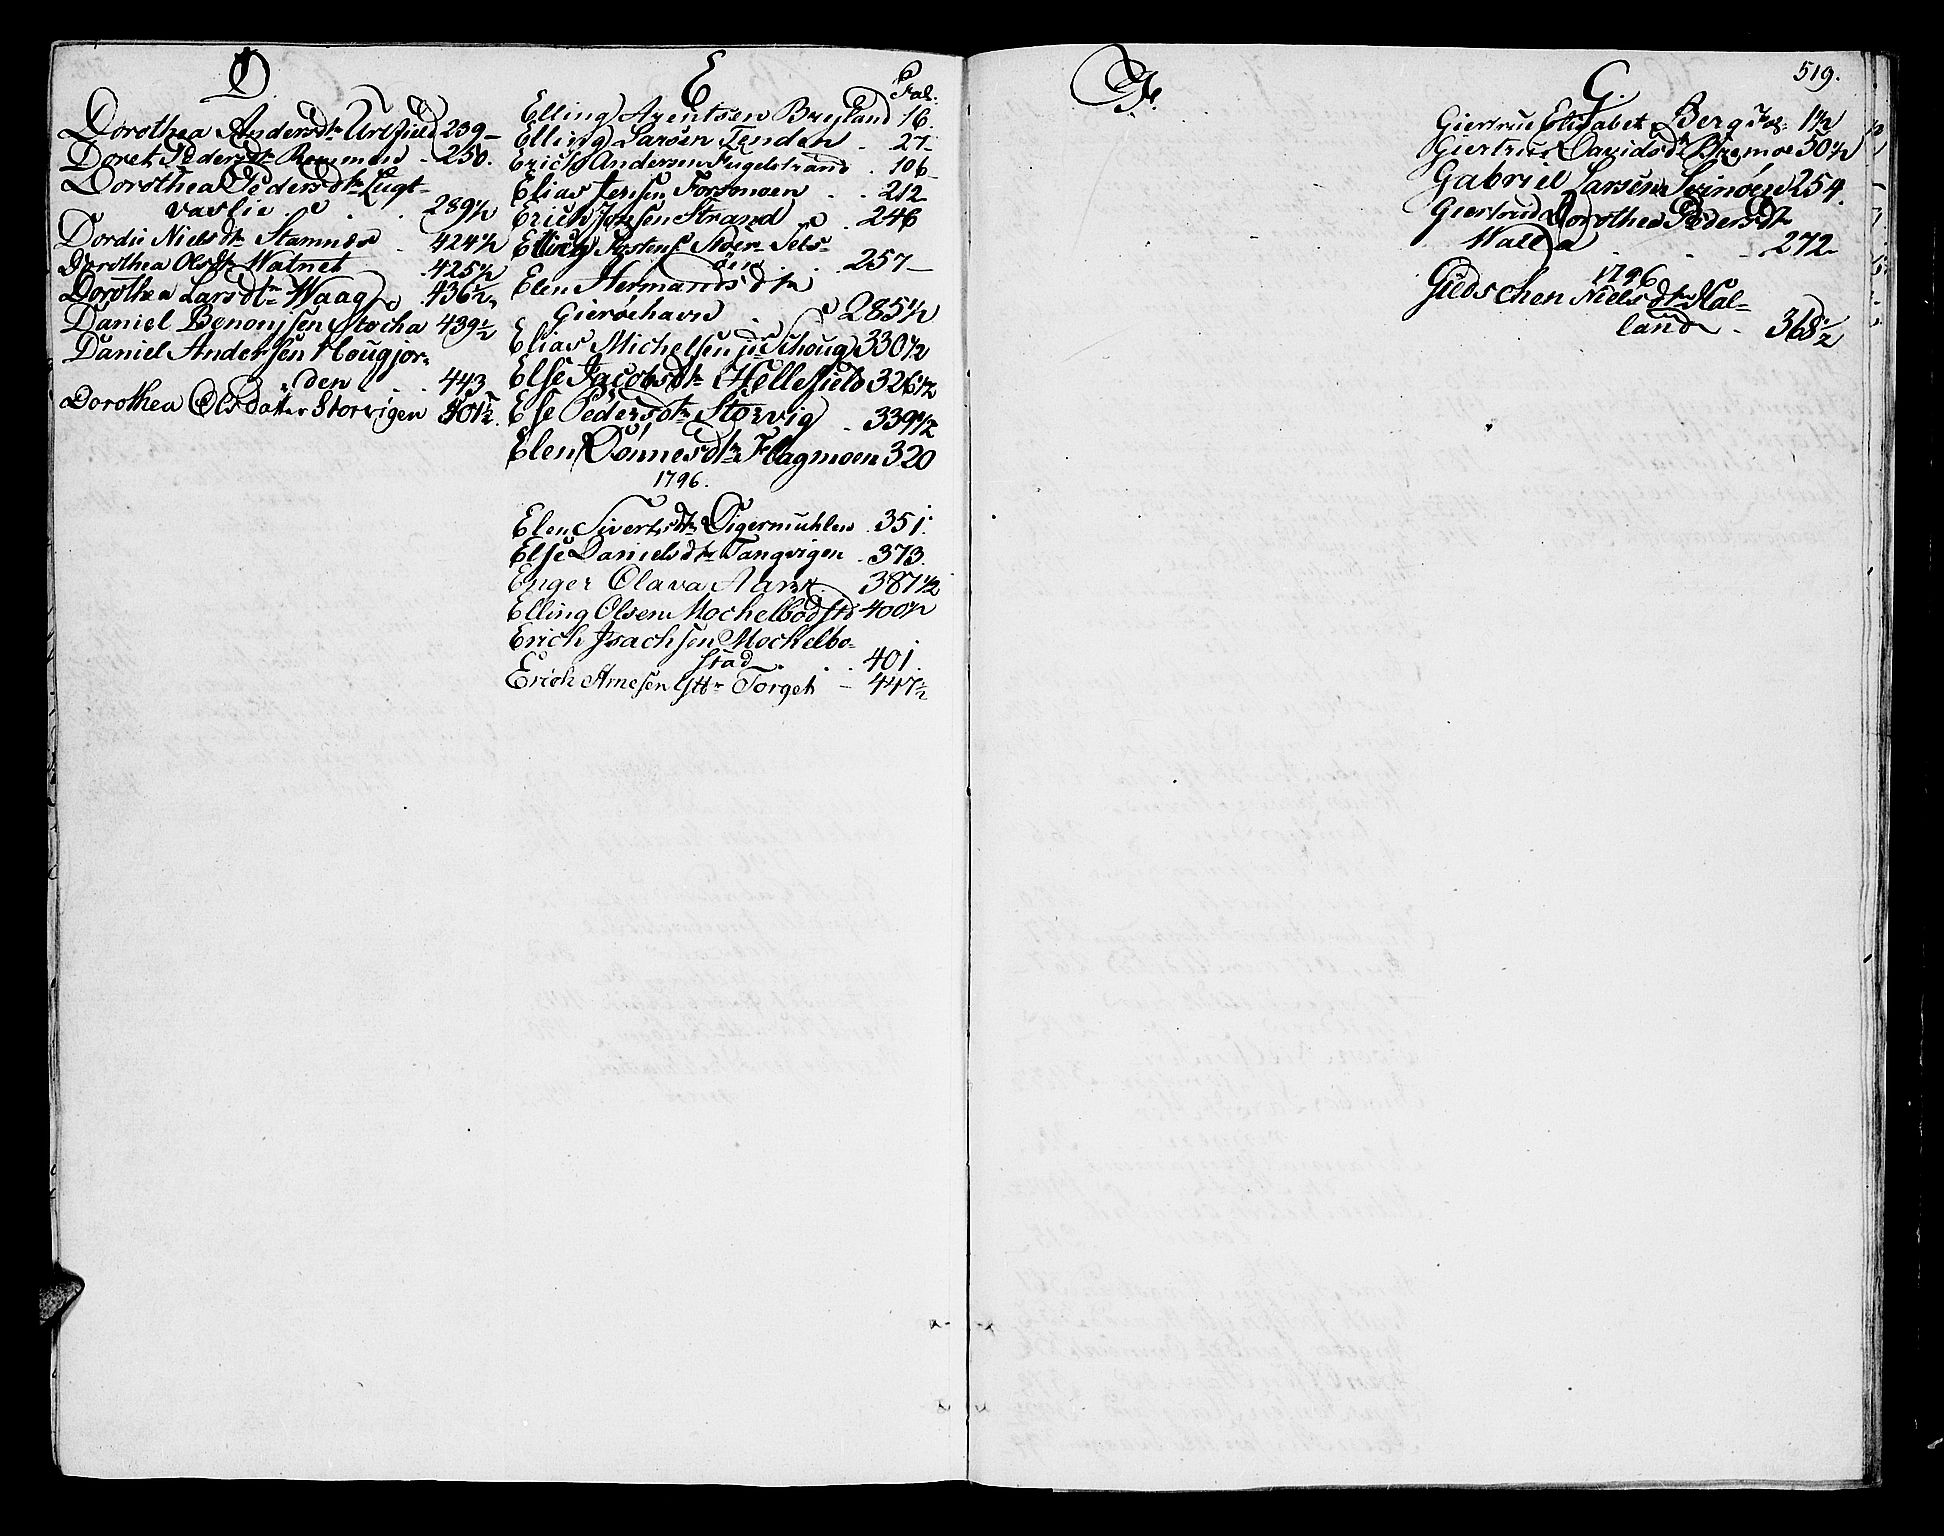 D.
Dorothea Andersdtr Urefield 239
Doret Pedersdtr Remmen - 250.
Dorothea Pedersdtr Lugt-
vaslie . . 289 1/2
Dordii Nielsdtr Stamnes - 424 1/2
Dorothea Olsdtr Watnet . 425 1/2
Dorothea Larsdtr Waag . 436 1/2
Daniel Benonjsen Stocha 439 1/2
Daniel Andersen Hougjor-
den . . 443
Dorothea Olsdatter Storvigen 401 1/2.
E Fol:
Elling Arentsen Brejland 16.
Elling Larsen Tenden . 27-
Erich Andersen Fugelstrand . 106
Elias Jensen Forsmoen . . 212
Erich Jonsen Strand . 246
Elling Tostens Stoer Sels-
öen . . 257
Elen Hermandsdtr
Gierøehavn . 285 1/2
Elias Michelsen jr Schoug 330 1/2
Else Jacobsdtr Hellesfield 326 1/2
Else Pedersdtr Storvig . 339 1/2
Elen Tønnesdtr Flagmoen 320
1796.
Elen Sivertsdtr Digermuhlen . 351.
Else Danielsdtr Tangvigen . 373.
Enger Olava Aarset 387 1/2
Elling Olsen Mochelbodstd 400 1/2
Erich Isachsen Mochelbo-
stad . . 401.
Erich Arnesen Ytt Torget - 447 1/2
F.
519.
G.
Giertrue Elisabet Berg Fol. 1 1/2
Giertrue Davidsdtr Bremoe 50 1/2
Gabriel Larsen Svinøen 254.
Giertrud Dorothea Pedersdtr
Walla . . 272
1796
Gidschen Nielsdtr Hal-
land . 368 1/2